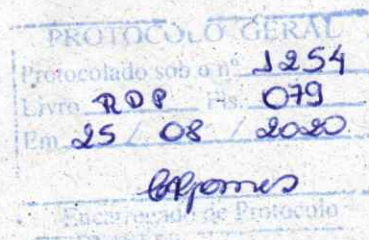 PROTOCOLO GERAL
Protocolado sob o nº 1254
Livro RDP Fls. 079
Em 25 / 08 / 2020
Encarregado de Protocolo